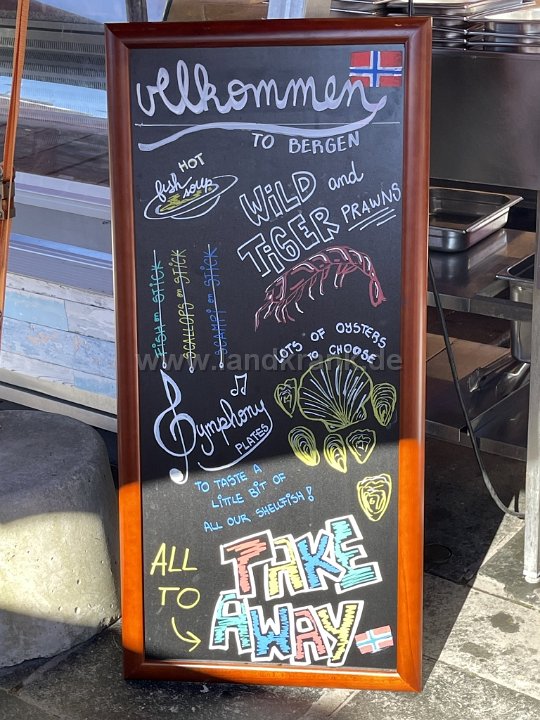 velkommen
TO BERGEN
HOT
fish soup
WILD and
TIGER PRAWNS
FISH on STICK
SCALLOPS on STICK
SCAMPI on STICK
LOTS OF OYSTERS
TO CHOOSE
www.landkrank.de
Symphony
PLATES
TO TASTE A
LITTLE BIT OF
ALL OUR SHELLFISH!
ALL
TO
TAKE
AWAY